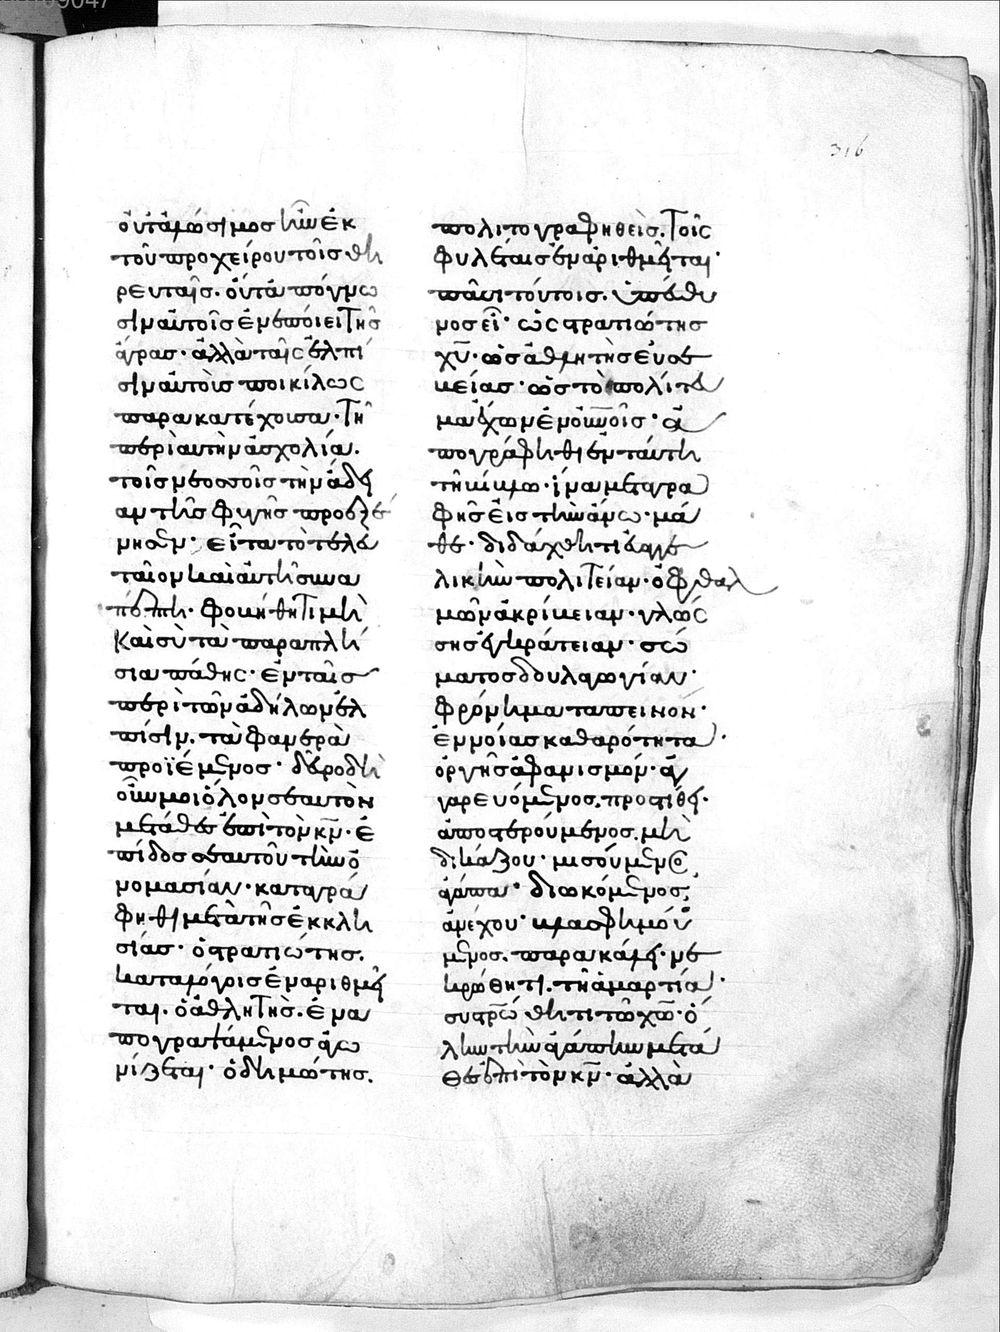 316
οὔτ' ἁλώσιμος ἦν ἐκ
τοῦ προχείρου τοῖς θη
ρευταῖς. οὔτ' ἀπόγνω
σιν αὐτοῖς ἐνεποίει τῆς
ἄγρας· ἀλλὰ ταῖς ἐλπί
σιν αὐτοὺς ποικίλως
παρακατέχουσα· τῇ
περὶ αὐτὴν ἀσχολίᾳ.
τοῖς νεοσσοῖς τὴν ἄδει
αν τῆς φυγῆς προεξέ
νησεν· εἶτα τὸ τελευ
ταῖον καὶ αὐτὴ συνα
πέπτη· φοβήθητι μὴ
καὶ σὺ τὰ παραπλή
σια πάθῃς· ἐν ταῖς
περὶ τῶν ἀδήλων ἐλ
πίσιν. τὰ φανερὰ
προϊέμενος· δεῦρο δὴ
οὖν μοι ὅλον σεαυτὸν
μετάθες ἐπὶ τὸν κν· ἐ
πίδος σεαυτοῦ τὴν ὀ
νομασίαν· καταγρά
φηθι μετὰ τῆς ἐκκλη
σίας· ὁ στρατιώτης.
καταλόγοις ἐναριθμεῖ
ται. ὁ ἀθλητὴς. ἐνα
πογραψάμενος ἀγω
νίζεται· ὁ δημότης.
πολιτογραφηθεὶς. τοῖς
φυλέταις ἐναριθμεῖται·
πᾶσι τούτοις. ὑπεύθυ
νος εἶ· ὡς στρατιώτης
χυ· ὡς ἀθλητὴς εὐσε
βείας· ὡς τὸ πολίτευ
μα ἔχων ἐν οὐνοῖς· ἀ
πογράφηθι ἐν ταύτῃ
τῇ βίβλῳ· ἵνα μεταγρα
φῇς εἰς τὴν ἄνω· μά
θε· διδάχθητι εὐαγγε
λικὴν πολιτείαν· ὀφθαλ
μῶν ἀκρίβειαν· γλώσ
σης ἐγκράτειαν· σώ
ματος δουλαγωγίαν·
φρόνημα ταπεινὸν·
ἐννοίας καθαρότητα·
ὀργῆς ἀφανισμόν· ἀγ
γαρευόμενος. προστίθει·
ἀποστερούμενος. μὴ
δικάζου· μισούμενος
ἀγάπα· διωκόμενος;
ἀνέχου· βλασφημού
μενος. παρακάλει· νε
κρώθητι. τῇ ἁμαρτίᾳ·
συστρώθητι τῷ χω· ὅ
λην τὴν ἀγάπην μετά
θες ἐπὶ τὸν κν· ἀλλὰ